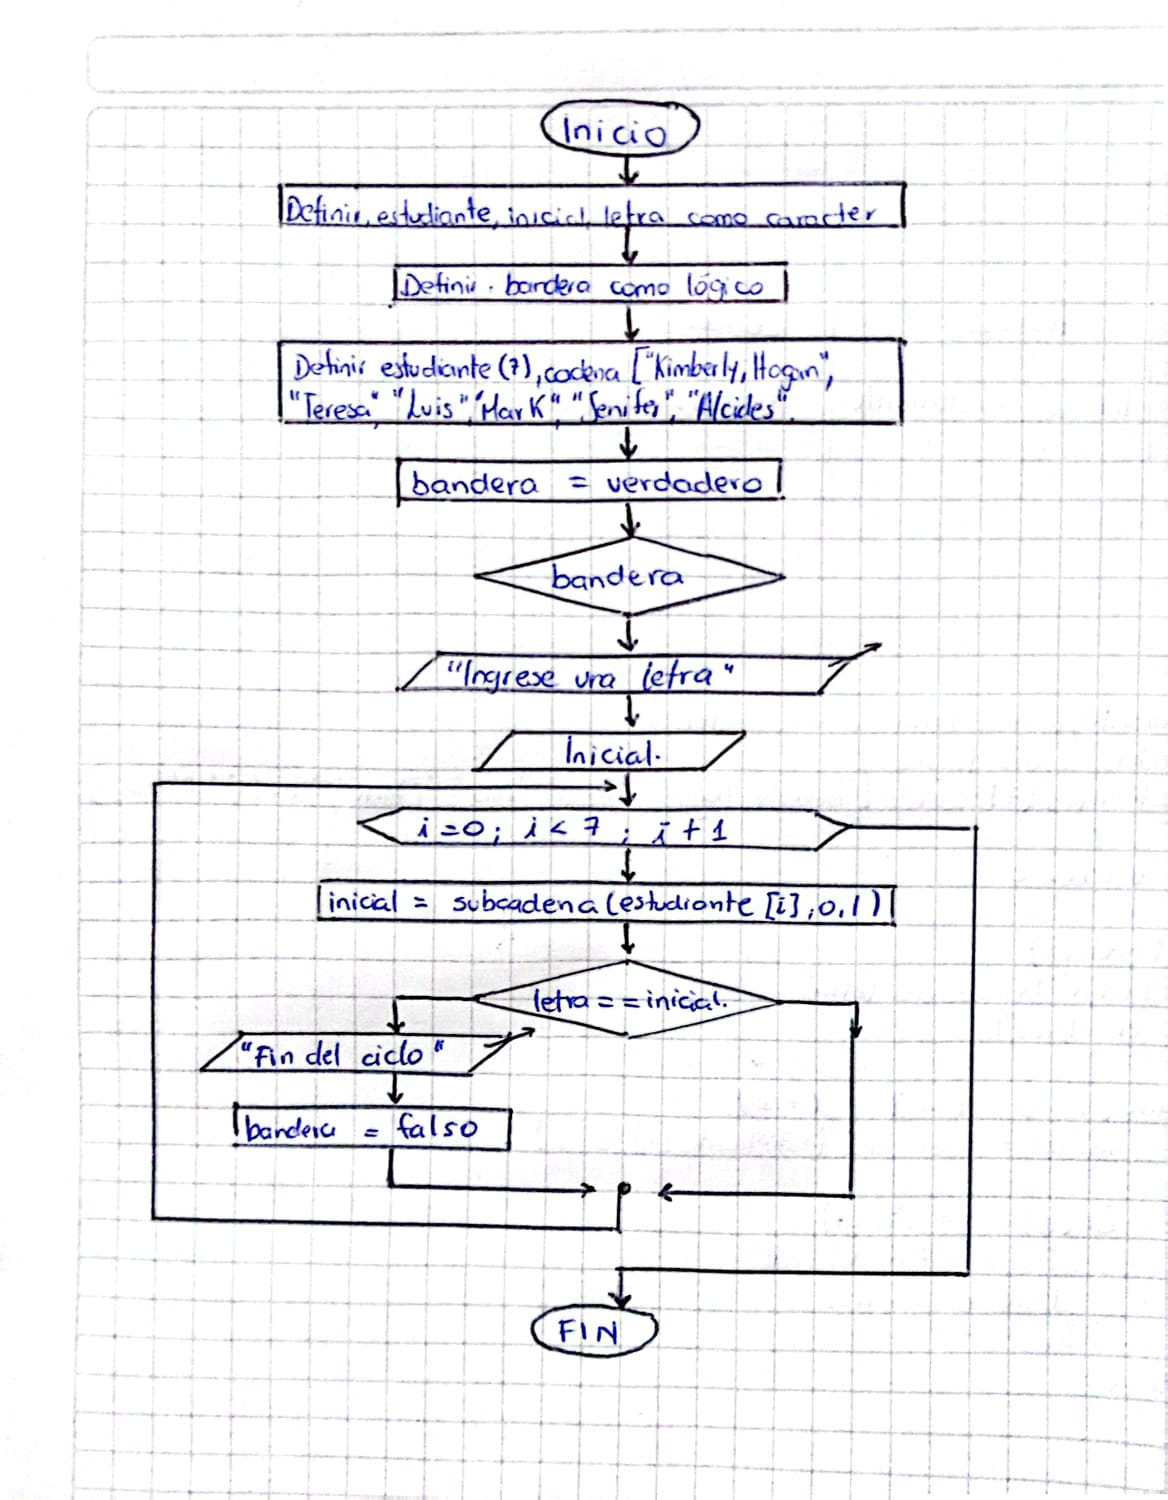 Inicio
Definir, estudiante, inicial, letra como caracter
Definir. bandera como lógico
Definir estudiante (7), cadena ["Kimberly, Hogan",
"Teresa", "Luis", "Mark", "Jenifer", "Alcides".
bandera = verdadero
bandera
"Ingrese una letra"
Inicial.
i=0; i < 7 ; i + 1
inicial = subcadena (estudiante [i], 0, 1)
letra == inicial.
"Fin del ciclo"
bandera = falso
FIN